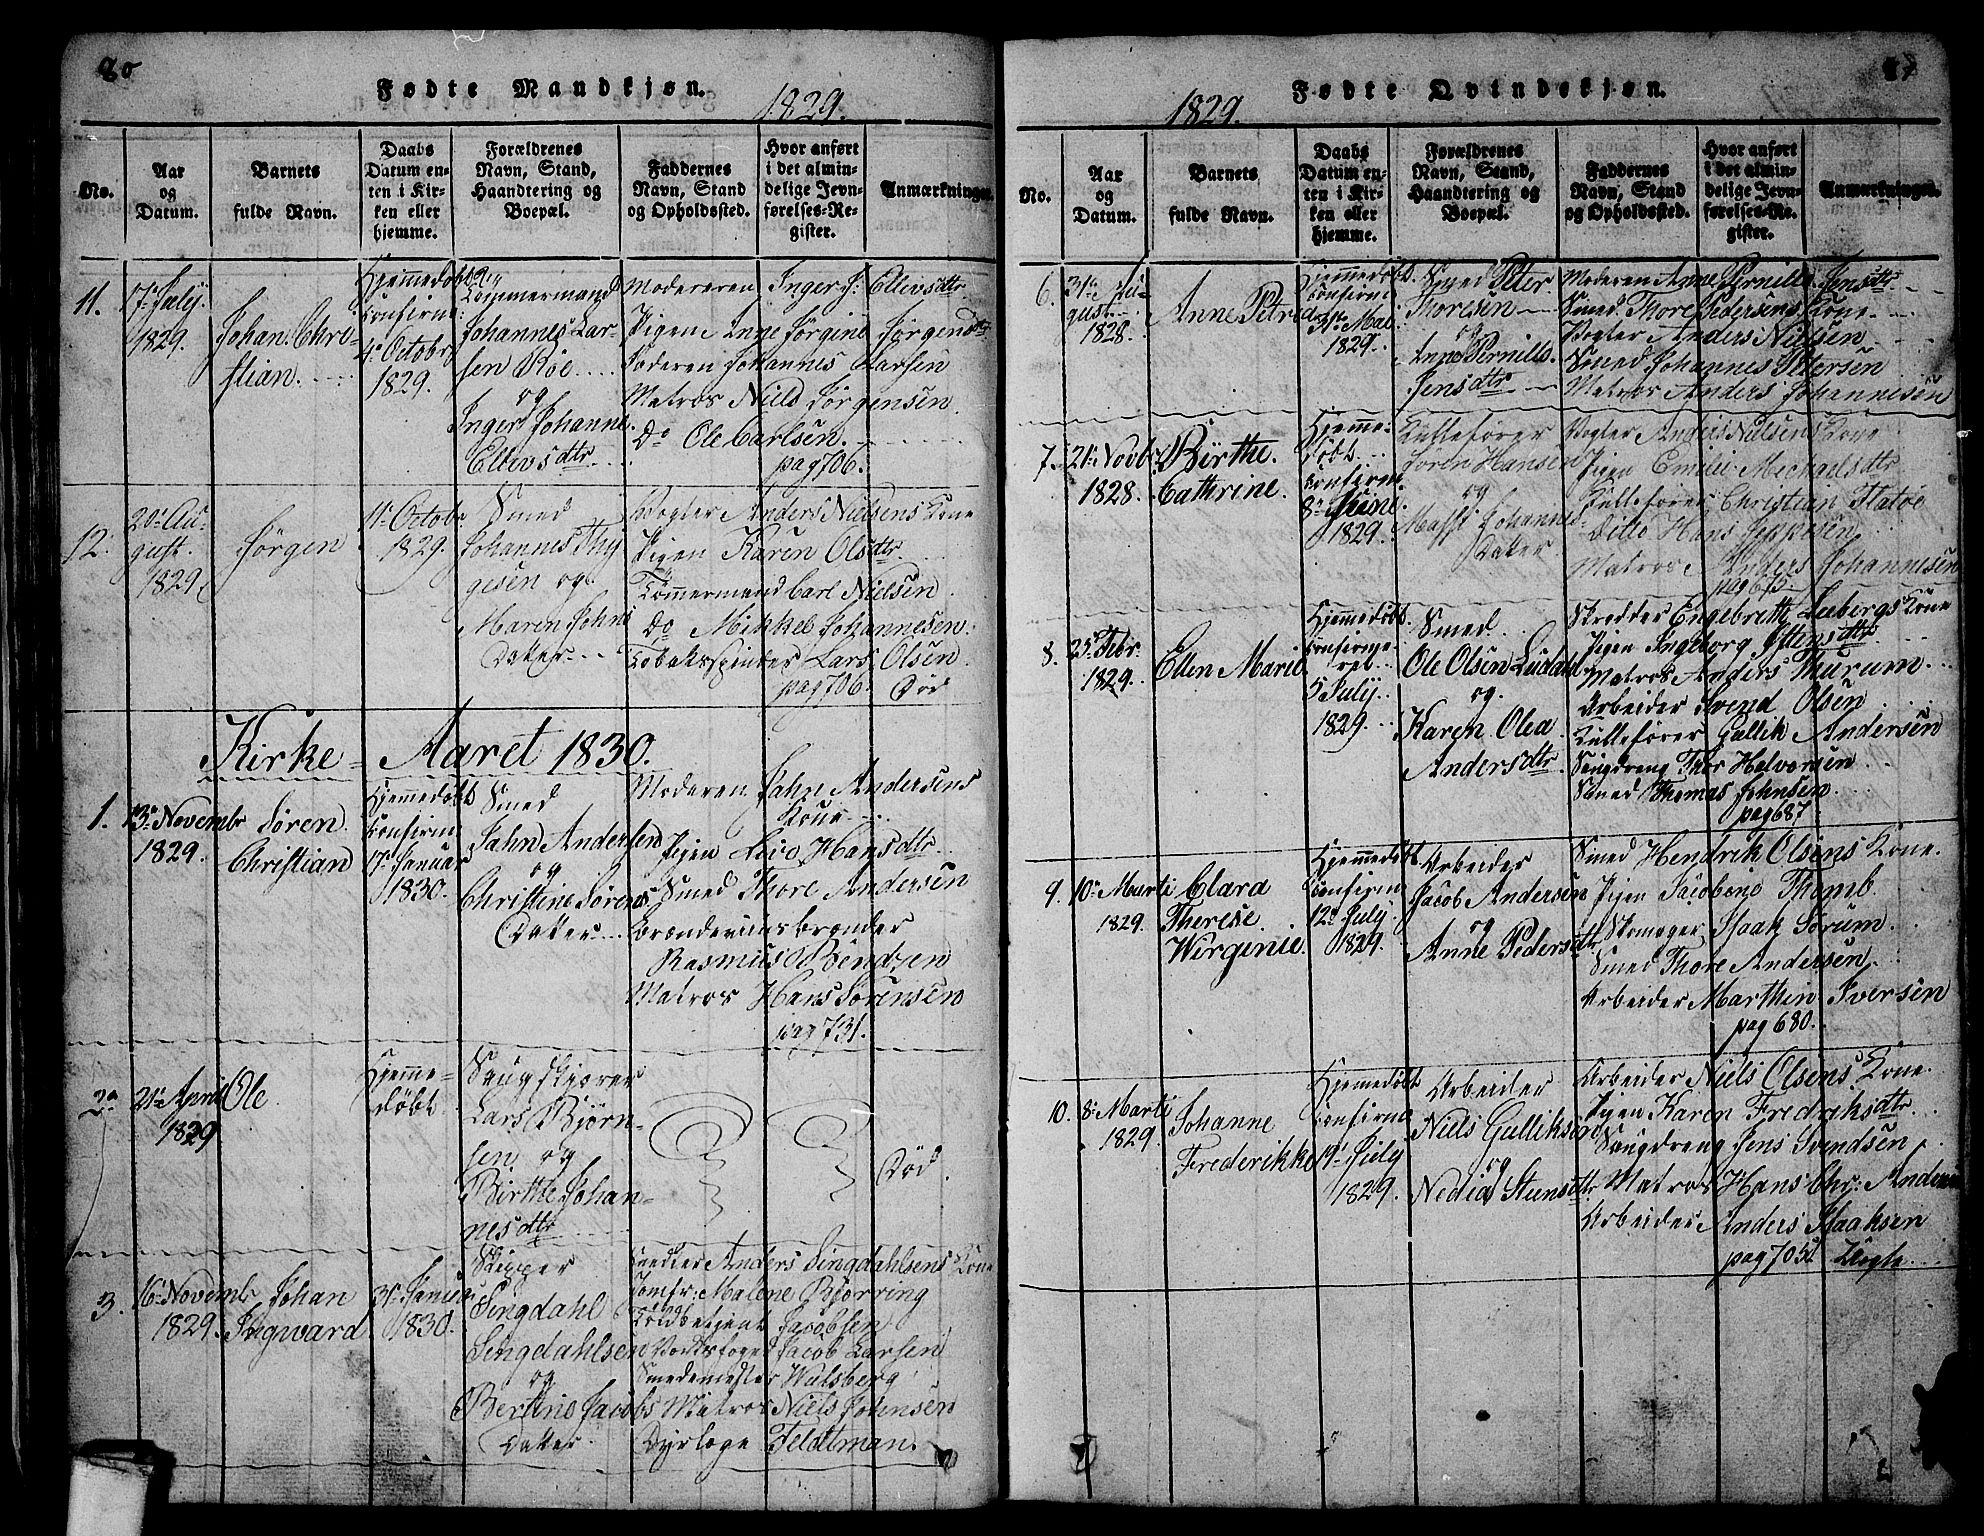 80
Fødte Mandkjøn.
1829.
No.
Aar og Datum.
Barnets fulde Navn.
Daabs Datum enten i Kirken eller hjemme.
Forældrenes Navn, Stand, Haandtering og Boepæl.
Faddernes Navn, Stand og Opholdssted.
Hvor anført i det almindelige Jevnførelses-Register.
Anmærkninger.
11.
17de July
1829.
Johan Christian.
Hjemmedøbt
Confirm:
4de Octobr
1829.
Tømmermand
Johannes Larsen Roe
og
Inger Johanne
Ellevsdtr
Moderen Inger J: Ellevsdtr
Pigen Anne Jørgine Jørgensdtr
Faderen Johannes Larsen
Matros Niels Jørgensen
Do Ole Carlsen.
pag 706.
12.
20de August
1829
Jørgen
11te Octobr
1829.
Smed
Johannes Thygesen og
Maren Johns
Datter
Vogter Anders Nielsens Kone
Pigen Karen Olsdtr
Tømmermand Carl Nielsen
Do Mikkel Johannesen.
Tobakspinder Lars Olsen
pag 706.
Død
Kirke-Aaret 1830.
1.
13de Novembr
1829.
Søren
Christian
Hjemmedøbt
Confirm.
17de Januar
1830.
Smed
Jahn Andersen
og
Christine Sørens
Datter
Moderen Jahn Andersens
Kone
Pigen Hansdtr
Smed Thore Andersen
Brændeviinsbrænder
Rasmus Bendzen
Matros Hans Sørensen
pag 731.
2.
21de April
1829
Ole
Hjemmedøbt
Saugskjærer
Lars Bjørnsen og
Birthe Johannesdtr
Død.
3.
16de Novembr
1829.
Johan
Segward
31te Januar
1830.
Skipper
Singdahl
Singdahlsen
og
Berthe Jacobs
Datter
Anders Singdahlsens Kone
Jomfr: Malene Bjørring
Toldbetjent Jacobsen
Jacob Larsen
Smedemester Wulsberg
Matros Niels Johnsen
Feldtman.
Fødte Qvindekjøn.
1829.
No.
Aar og Datum.
Barnets fulde Navn.
Daabs Datum enten i Kirken eller hjemme.
Forældrenes Navn, Stand, Haandtering og Boepæl.
Faddernes Navn, Stand og Opholdssted.
Hvor anført i det almindelige Jevnførelses-Register.
Anmærkninger.
6.
31te August
1828.
Anne Petrie
Hjemmedøbt
Confirm
Mai
1829.
Smed Peter
Thoresen
og
Anne Pernille
Jensdtr
Moderen Anne Pernille Jensdtr
Smed Thore Pedersens Kone
Vogter Anders Nielsen
Smed Johannes Petersen
Matros Anders Johannesen
7.
21de Novbr
1828.
Birthe
Cathrine.
Hjemmedøbt
Confirm.
8de Juni
1829.
Kullefører
Søren Hansen
og
Johannes
Datter
Vogter Anders Nielsens Kone
Pigen Emilie Michaelsdtr
Kullefører Christian Flatøe
Ditto Hans Jeppesen
Matros Anders Johannesen
pag 675.
8.
25de Febr.
1829.
Ellen Marie
Hjemmedøbt
Confirmeret
5 July
1829.
Smed
Ole Olsen Ludahl
og
Karen Olea
Andersdtr
Skrædder Engebreth Leebergs Kone
Pigen Ingeborg Ottensdtr
Matros Anders Thurum
Arbeider Svend Olsen
Kullefører Gullik Andersen
Saugdreng Thor Halvorsen
Smed Thomas Johnsen
pag 687
9.
10de Marti
1829.
Clara
Therese
Wirginie.
Hjemmedøbt
Confirm
12te July
1829.
Arbeider
Jacob Andersen
og
Anne Pedersdtr
Smed Hendrik Olsens Kone
Pigen Jacobine Thomb.
Skomager Isaak Sørum.
Smed Thore Andersen
Arbeider Marthin Iversen
pag 680.
10.
8de Marti
1829.
Johanne
Frederikke
Hjemmedøbt
Confirm
19de July
1829.
Arbeider
Niels Gulliksen
og
Nedia Stensdtr
Arbeider Niels Olsens Kone.
Pigen Karen Fredriksdtr
Saugdreng Jens Svendsen
Matros Hans Chr: Andersen
Arbeider Anders Isaaksen
pag 705